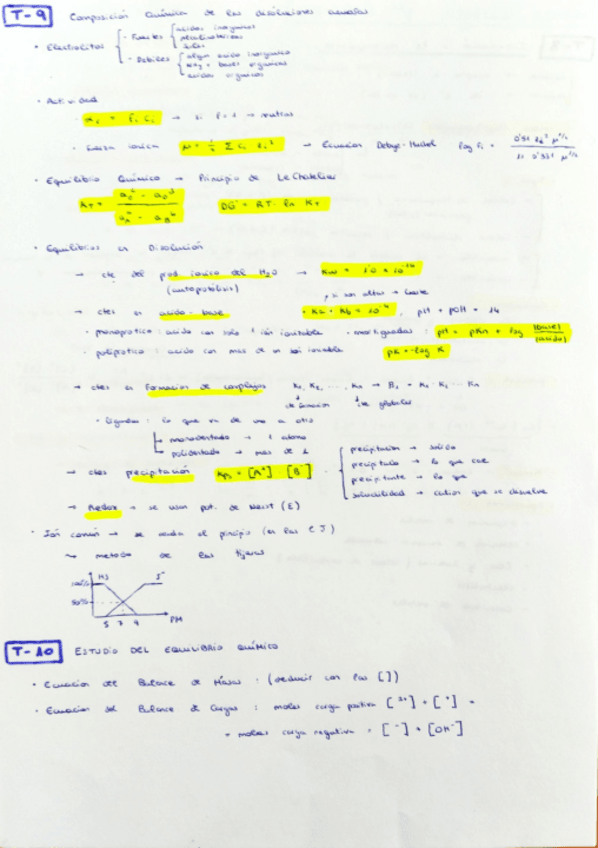 T-9 Composición Química de las disoluciones acuosas
· Electrolitos
- Fuertes
ácidos inorgánicos
sales
- Débiles
algún ácido inorgánico
NH3 y bases orgánicas
ácidos orgánicos
· Actividad
→ si f=1 → neutras
· Fuerza iónica μ = 1/2 Σ ci zi² → Ecuación Debye-Hückel log fi =
· Equilibrio Químico → Principio de Le Chatelier
DG = RT · ln KT
· Equilibrios en Disolución
→ cte del prod. iónico del H2O → Kw = 1'0 × 10⁻¹⁴
(autoprotólisis)
→ ctes en ácido-base · Ka · Kb = 10⁻¹⁴, pH + pOH = 14
· monoprótico: ácido con solo 1 ión ionizable · amortiguadas: pH = pKa + log [base]/[ácido]
· poliprótico: ácido con más de un ión ionizable pK = -log K
→ ctes en Formación de complejos K1, K2, ..., Kn → Bn = K1 · K2 ... Kn
cte formación cte globales
· Ligando: lo que va de uno a otro
→ monodentado → 1 átomo
→ polidentado → más de 1
→ ctes precipitación Kps = [A⁺] [B⁻]
precipitación → sólido
precipitado → lo que cae
precipitante → lo que
solubilidad → catión que se disuelve
→ Redox → se usan pot. de Nerst (E)
· Ión común → se ayuda al principio (en las CJ)
↳ método de las tijeras
100%
50%
5 7 9 PM
T-10 ESTUDIO DEL EQUILIBRIO QUÍMICO
· Ecuación del Balance de Masas: (deducir con las [])
· Ecuación del Balance de Cargas: moles carga positiva [²⁺] + [⁺] =
= moles carga negativa = [⁻] + [OH⁻]